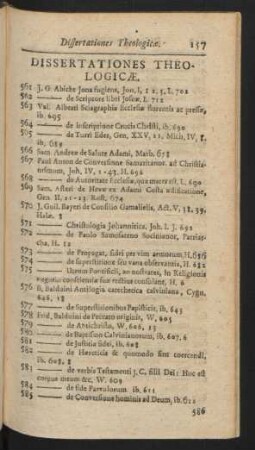 Dissertationes Theologicæ. 157
DISSERTATIONES THEO-
LOGICÆ.
561 J. G. Abicht Jona fugiens, Jon. I, 1 2. 3, L. 702
562 —— de Scriptore libri Josuæ. L. 712
563 Val. Alberti Sciagraphia Ecclesiæ florentis ac pressæ,
ib. 695
564 —— de inscriptione Crucis Christi, ib. 690
565 —— de Turri Eder, Gen. XXV, 21, Mich. IV, 8.
ib. 689
566 Sam. Andreæ de Salute Adami, Marb. 678
567 Paul Anton de Conversione Samaritanor. ad Christia-
nismum, Joh. IV, 1-43. H. 692
568 —— de Autoritate Ecclesiæ, quæ mater est L. 690
569 Sam. Asteri de Heva ex Adami Costa ædificatione,
Gen. II, 21-23. Rost. 674
570 J. Guil. Bajeri de Consilio Gamalielis, Act. V, 38. 39.
Halæ.
571 —— Christologia Johannitica. Joh. I. J. 691
572 —— de Paulo Samosateno Sociniano, Patriar-
cha. H.
573 —— de Purpugat, fidei per vim armorum, H. 686
574 —— de superstitione seu vara observantia, H. 682
575 —— Utrum Pontificii, an nostrates, in Religionis
negotio conscientiæ suæ rectius consulant, H.
576 B. Balduini Antilogia catechetica calviniana, Cygn.
646,
577 —— de Superstitionibus Papisticis, ib. 645
578 Frid. Balduini de Peccato originis, W. 605
579 —— de Antichristo, W. 606,
580 —— de Baptismo Calvinianorum, ib. 607.
581 —— de Justitia fidei, ib. 608
582 —— de Hæreticis & quomodo sint coercendi,
ib. 608.
583 —— de verbis Testamenti J. C. filii Dei: Hoc est
corpus meum &c. W. 609
584 —— de fide Parvulorum ib. 611
585 —— de Conversione hominis ad Deum, ib. 612
586